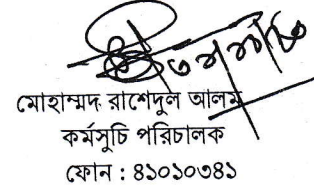 মোহাম্মদ রাশেদুল আলম
কর্মসূচি পরিচালক
ফোন : ৪১০১০৩৪১